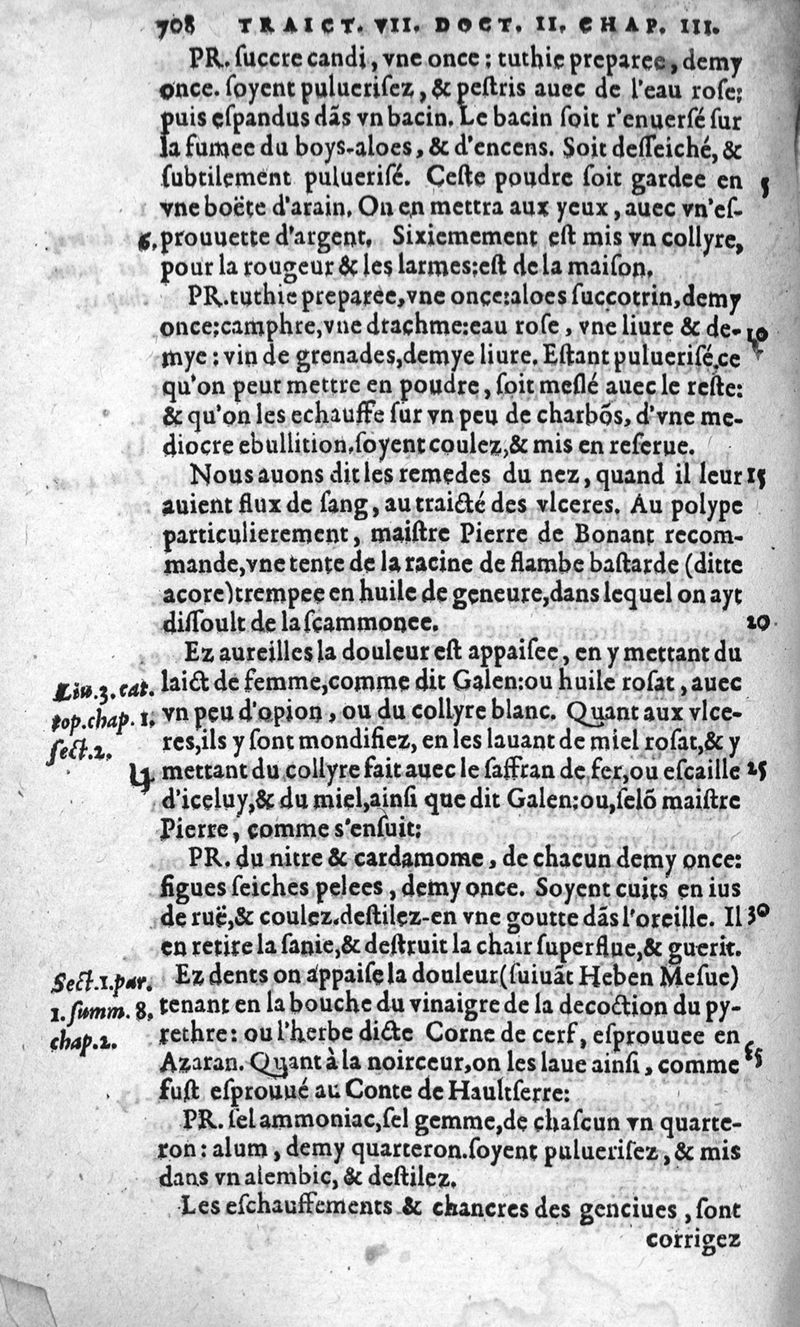 708 TRAICT. VII. DOCT. II. CHAP. III.
PR. ſuccre candi, vne once: tuthie preparee, demy
once. ſoyent pulueriſez, & peſtris auec de l'eau roſe:
puis eſpandus dãs vn bacin. Le bacin ſoit r'enuerſé ſur
la fumee du boys-aloes, & d'encens. Soit deſſeiché, &
ſubtilement pulueriſé. Ceſte poudre ſoit gardee en 5
vne boëte d'arain. On en mettra aux yeux, auec vn'eſ-
6. prouuette d'argent. Sixiemement eſt mis vn collyre,
pour la rougeur & les larmes: eſt de la maiſon.
PR. tuthie preparee, vne once: aloes ſuccotrin, demy
once: camphre, vne drachme: eau roſe, vne liure & de- 10
mye: vin de grenades, demye liure. Eſtant pulueriſé, ce
qu'on peut mettre en poudre, ſoit meſlé auec le reſte:
& qu'on les echauffe ſur vn peu de charbõs, d'vne me-
diocre ebullition. ſoyent coulez, & mis en reſerue.
Nous auons dit les remedes du nez, quand il leur 15
auient flux de ſang, au traicté des vlceres. Au polype
particulierement, maiſtre Pierre de Bonant recom-
mande, vne tente de la racine de flambe baſtarde (ditte
acore) trempee en huile de geneure, dans lequel on ayt
diſſoult de la ſcammonee. 20
Ez aureilles la douleur eſt appaiſee, en y mettant du
Liu. 3. cat. laict de femme, comme dit Galen: ou huile roſat, auec
top. chap. 1. vn peu d'opion, ou du collyre blanc. Quant aux vlce-
ſect. 2. res, ils y ſont mondifiez, en les lauant de miel roſat, & y
mettant du collyre fait auec le ſaffran de fer, ou eſcaille 25
d'iceluy, & du miel, ainſi que dit Galen: ou, ſelõ maiſtre
Pierre, comme s'enſuit:
PR. du nitre & cardamome, de chacun demy once:
figues ſeiches pelees, demy once. Soyent cuits en ius
de ruë, & coulez. deſtilez-en vne goutte dãs l'oreille. Il 30
en retire la ſanie, & deſtruit la chair ſuperflue, & guerit.
Sect. 1. par. Ez dents on appaiſe la douleur (ſuiuãt Heben Meſue)
1. ſumm. 8, tenant en la bouche du vinaigre de la decoction du py-
chap. 2. rethre: ou l'herbe dicte Corne de cerf, eſprouuee en
Azaran. Quant à la noirceur, on les laue ainſi, comme
fuſt eſprouué au Conte de Haultſerre:
PR. ſel ammoniac, ſel gemme, de chaſcun vn quarte-
ron: alum, demy quarteron. ſoyent pulueriſez, & mis
dans vn alembic, & deſtilez.
Les eſchauffements & chancres des genciues, ſont
corrigez